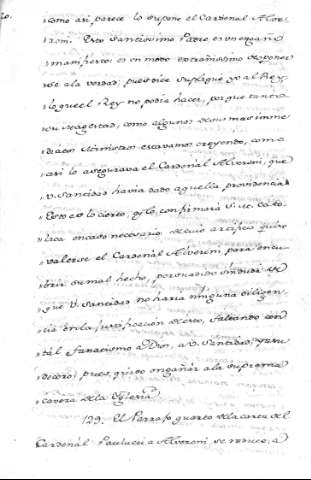 como asi parece lo supone el Cardenal Alve-
roni. Esto Santissimo Padre es un engaño
manifiesto: es un modo extrañissimo de poner
se a la verdad; pues dice Supliqué yo al Rey
lo que el Rey no podia hacer, porque tanto
su Magestad, como algunos de sus mas inme
diatos Ministros estavamos creyendo, como
asi lo asegurava el Cardenal Alveroni, que
V. Santidad havia dado aquella providencia
Esto es lo cierto, y lo confirmará S. M. Cato-
lica en caso necesario de cuio artificio quiso
valerse el Cardenal Alveroni para encu-
brir su mal hecho, persuadido sin duda de
que V. Santidad no haria ninguna diligen
cia en la justificacion de esto, faltando con
tál fanatismo a Dios, a V. Santidad, y a su
decoro; pues quiso engañar a la suprema
cavera de la Yglesia
129. El Parrafo quarto de la carta del
Cardenál Paulucci a Alveroni se reduce, a